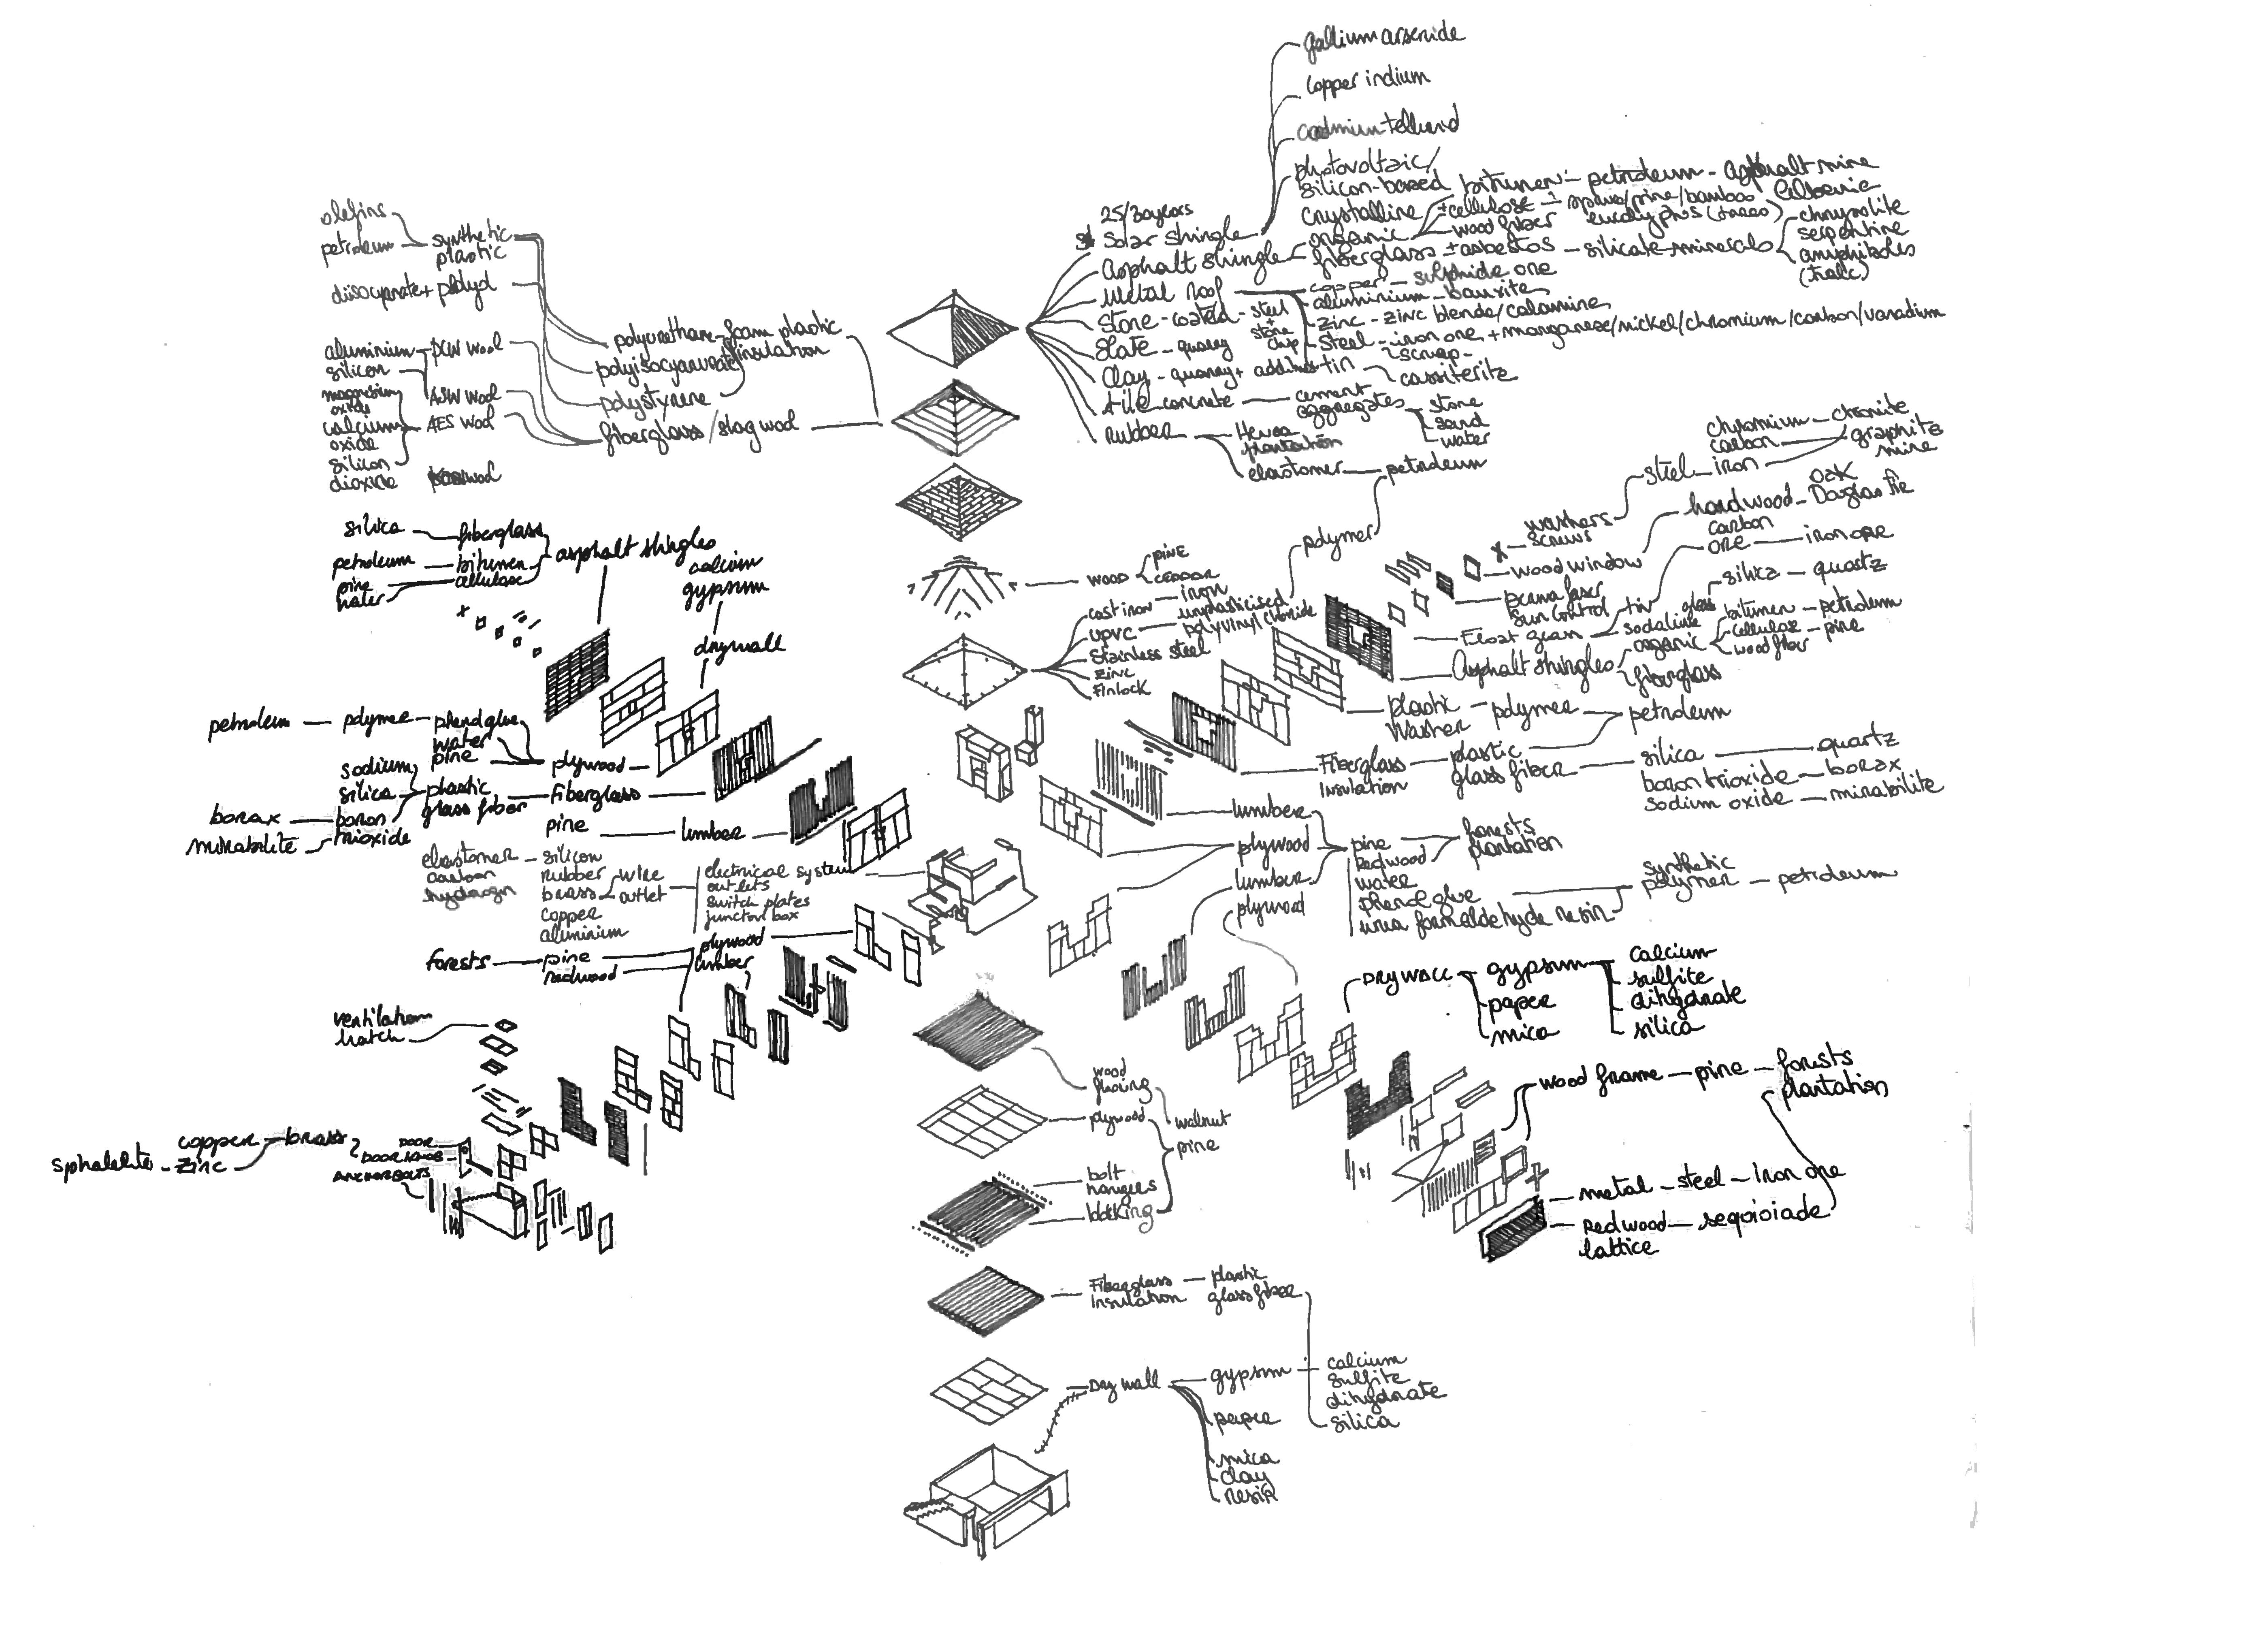 gallium arsenide
copper indium
cadmium tellurid
photovoltaic/
silicon-based
crystalline
25/30 years
Solar shingle
organic
bitumen - petroleum - asphalt mine
± cellulose - spruce/pine/bamboo
wood fiber
eucalyptus (trees)
Asphalt shingle
fiberglass ± asbestos - silicate minerals
chrysolite
serpentine
amphiboles
(tralc)
Metal roof
copper - sulphide ore
aluminium - bauxite
zinc - zinc blende/calamine
steel - iron ore + manganese/nickel/chromium/carbon/vanadium
tin
scrap
cassiterite
Stone-coated - steel
+
stone
chip
Slate - quarry
Clay - quarry +
tile concrete - cement
aggregates
stone
sand
water
rubber
Hevea
plantation
elastomer - petroleum
polymer
olefins
petroleum - synthetic
plastic
diisocyanate + polyol
polyurethane foam plastic
insulation
polyisocyanurate
polystyrene
fiberglass/slag wool
aluminium - PCW wool
silicon
ASW wool
magnesium
oxide
calcium
oxide
AES wool
silicon
dioxide
silica - fiberglass
petroleum - bitumen
pine
water
cellulose
asphalt shingles
calcium
gypsum
drywall
wood
pine
cedar
cast iron - iron
UPVC - unplasticised
polyvinyl chloride
Stainless steel
Zinc
Finlock
washers
screws
steel - iron
chromium - chromite
carbon
graphite
mine
wood window
hardwood - Douglas fir
oak
carbon
ore - iron ore
sun control
tin
Float glass
sodalime
glass
silica - quartz
Asphalt shingles
organic
bitumen - petroleum
cellulose - pine
wood fiber
fiberglass
plastic - polymer - petroleum
Washer
Fiberglass
Insulation
plastic
glass fiber
silica - quartz
boron trioxide - borax
sodium oxide - mirabilite
petroleum - polymer - phenol glue
water
pine
plywood
sodium
silica
boron
trioxide
borax
mirabilite
plastic
glass fiber
fiberglass
pine - lumber
elastomer - silicon
carbon
hydrogen
rubber
brass
copper
aluminium
wire
outlet
electrical system
outlets
switch plates
junction box
forests - pine
redwood
plywood
lumber
lumber
plywood
lumber
plywood
pine
Redwood
water
phenol glue
urea formaldehyde resin
forests
plantation
synthetic
polymer - petroleum
DRYWALL
gypsum
paper
mica
calcium
sulfite
dihydrate
silica
ventilation
hatch
sphalelite - zinc
copper - brass
DOOR
DOOR KNOB
ANCHOR BOLTS
wood frame - pine - forests
plantation
metal - steel - iron ore
Redwood - sequioiade
lattice
wood
flooring
walnut
plywood
pine
bolt
hangers
blocking
Fiberglass - plastic
Insulation glass fiber
Dry wall - gypsum
calcium
sulfite
dihydrate
silica
paper
mica
clay
resin